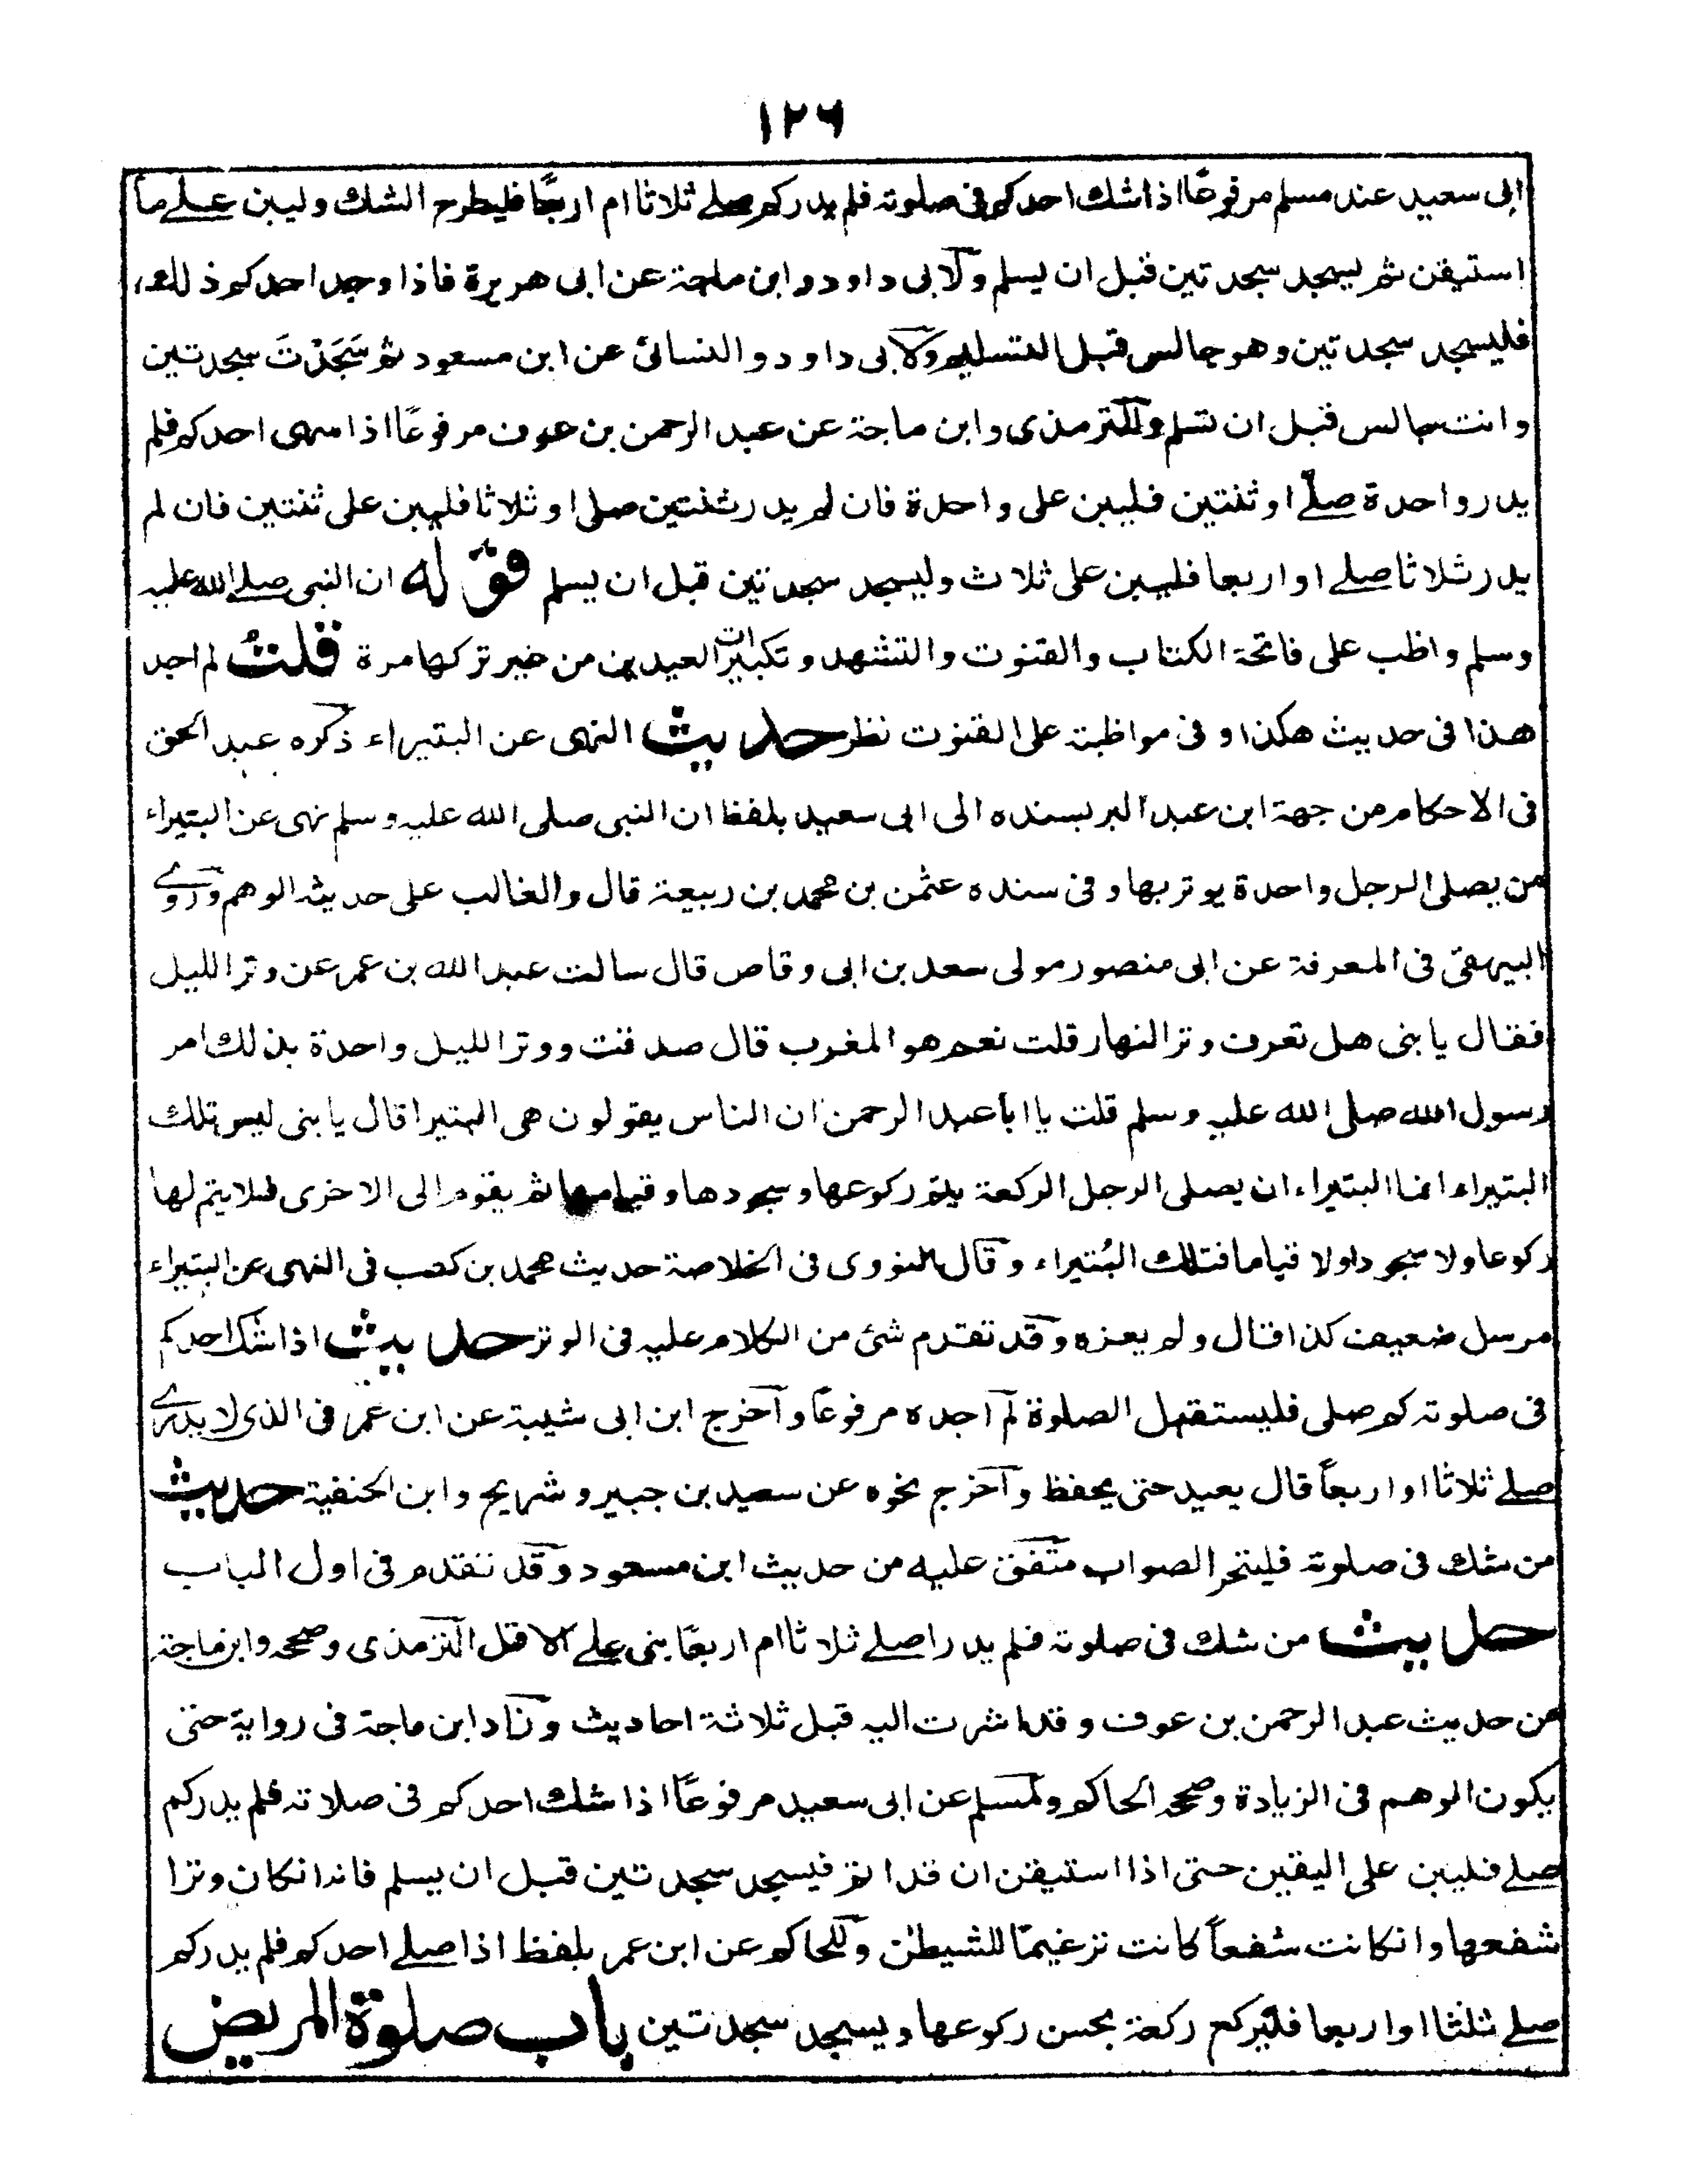 ١٢٦
ابى سعيد عند مسلم مرفوعًا اذا شك احدكم فى صلوته فلم يدركم صلے ثلاثا ام اربعًا فليطرح الشك وليبن علے ما
استيقن ثم يسجد سجدتين قبل ان يسلم ولابى داود وابن ماجة عن ابى هريرة فاذا وجد احدكم ذلك
فليسجد سجدتين وهو جالس قبل التسليم ولابى داود والنسائى عن ابن مسعود ثم سَجَدْتَ سجدتين
وانت جالس قبل ان تسلم وللترمذى وابن ماجة عن عبد الرحمن بن عوف مرفوعًا اذا سهى احدكم فلم
يدر واحدة صلے او ثنتين فليبن على واحدة فان لم يدر ثنتين صلى او ثلاثا فليبن على ثنتين فان لم
يدر ثلاثا صلے او اربعا فليبن على ثلاث وليسجد سجدتين قبل ان يسلم قوله ان النبى صلے الله عليه
وسلم واظب على فاتحة الكتاب والقنوت والتشهد وتكبيرات العيدين من غير تركها مرة قلت لم اجد
هذا فى حديث هكذا و فى مواظبة على القنوت نظر حديث النهى عن البتيراء ذكره عبد الحق
فى الاحكام من جهة ابن عبد البر بسنده الى ابى سعيد بلفظ ان النبى صلى الله عليه وسلم نهى عن البتيراء
من يصلى الرجل واحدة يوتر بها و فى سنده عثمن بن محمد بن ربيعة قال والغالب على حديثه الوهم وروے
البيهقى فى المعرفة عن ابى منصور مولى سعد بن ابى وقاص قال سالت عبد الله بن عمر عن وتر الليل
فقال يا بنى هل تعرف وتر النهار قلت نعم هو المغرب قال صدقت ووتر الليل واحدة بذلك امر
رسول الله صلى الله عليه وسلم قلت يا ابا عبد الرحمن ان الناس يقولون هى البتيرا قال يا بنى ليس تلك
البتيراء انما البتيراء ان يصلى الرجل الركعة يتم ركوعها وسجودها وقيامها ثم يقوم الى الاخرى فلا يتم لها
ركوعا ولا سجودا ولا قياما فتلك البُتيراء وقال النووى فى الخلاصة حديث محمد بن كعب فى النهى عن البتيراء
مرسل ضعيف كذا قال ولم يعزه وقد تقدم شئ من الكلام عليه فى الوتر حديث اذا شك احدكم
فى صلوته كم صلى فليستقبل الصلوة لم اجده مرفوعًا وآخرج ابن ابى شيبة عن ابن عمر فى الذى لا يدرے
صلے ثلاثا او اربعاً قال يعيد حتى يحفظ وآخرج نحوه عن سعيد بن جبير و شريح وابن الحنفية حديث
من شك فى صلوته فليتحر الصواب متفق عليه من حديث ابن مسعود وقد تقدم فى اول الباب
حديث من شك فى صلوته فلم يدر اصلے ثلاثا ام اربعًا بنى علے الاقل الترمذى وصححه وابن ماجة
من حديث عبد الرحمن بن عوف وقد اشرت اليه قبل ثلاثة احاديث وزاد ابن ماجة فى رواية حتى
يكون الوهم فى الزيادة وصححه الحاكم ولمسلم عن ابى سعيد مرفوعًا اذا شك احدكم فى صلاته فلم يدركم
صلے فليبن على اليقين حتى اذا استيقن ان قد اتم فيسجد سجدتين قبل ان يسلم فانه انكان وترا
شفعها وانكانت شفعاً كانت ترغيمًا للشيطن وللحاكم عن ابن عمر بلفظ اذا صلے احدكم فلم يدركم
صلے ثلثا او اربعا فليركع ركعة يحسن ركوعها ويسجد سجدتين باب صلوة المريض